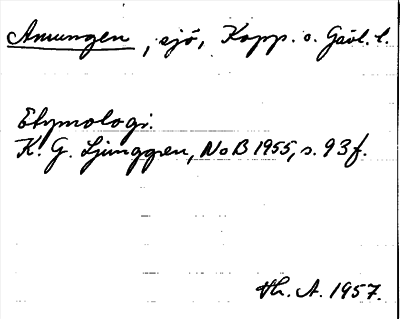 Amungen, sjö, Kopp. o. Gävl. l.
Etymologi.
K. G. Ljunggren, NoB 1955, s. 93 f.
Th. A. 1957.